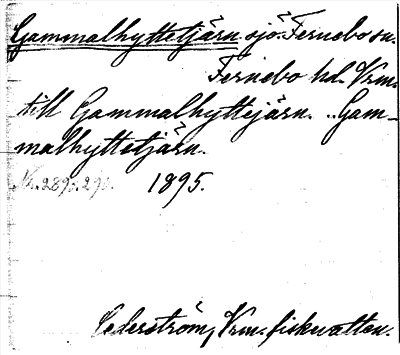 Gammalhyttetjärn. sjö. Fernebo sn.
Fernebo hd. Vrm.
till Gammalhyttejärn. „Gam-
malhyttetjärn.
1895.
Cederström, Vrm. fiskevatten.